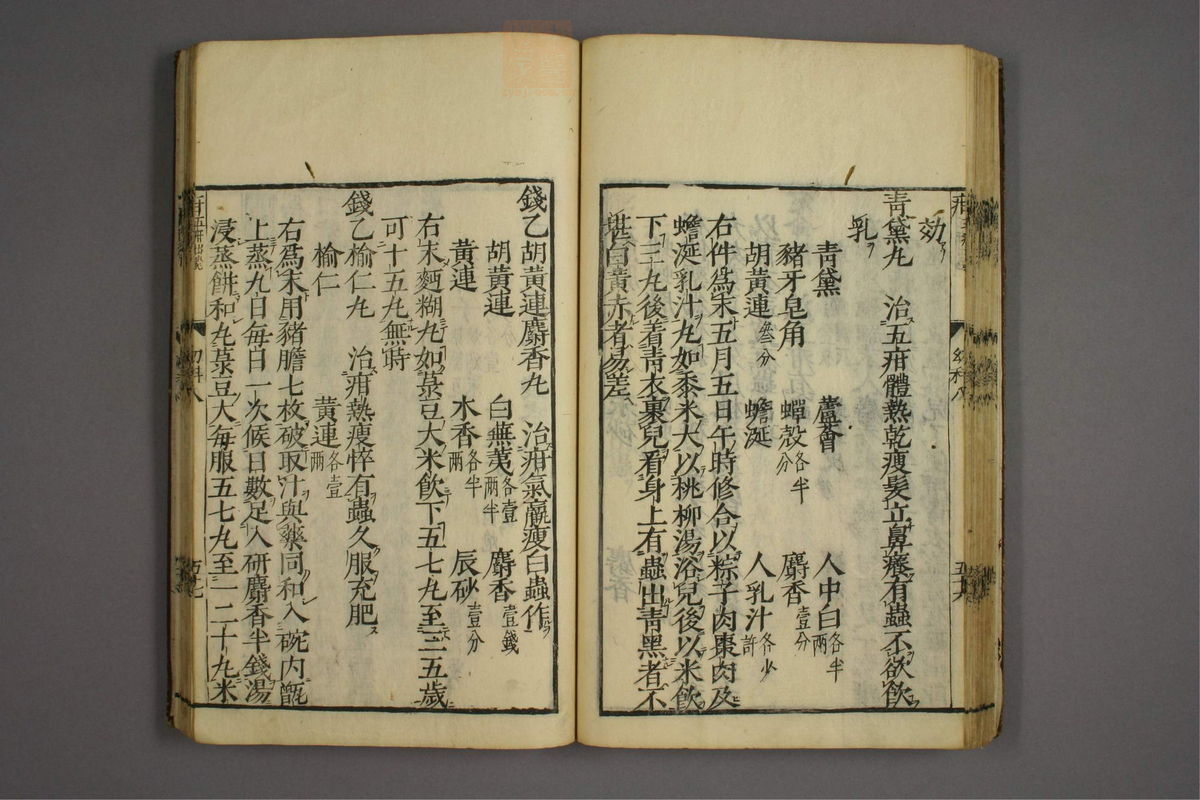 効
青黛丸 治五疳體熱乾瘦髮立鼻癢有蟲不欲飲
乳
青黛 蘆薈 人中白各半兩
豬牙皂角 蟬殻各半分 麝香壹分
胡黃連叄分 蟾涎 人乳汁各少許
右件為末五月五日午時修合以粽子肉棗肉及
蟾涎乳汁丸如黍米大以桃柳湯浴兒後以米飲
下三丸後着青衣裹兒看身上有蟲出青黑者不
堪白黃赤者易差
錢乙胡黃連麝香丸 治疳氣羸瘦白蟲作
胡黃連 白蕪荑各壹兩半 麝香壹錢
黃連 木香各半兩 辰砂壹分
右末麪糊丸如菉豆大米飲下五七丸至三五歲
可十五丸無時
錢乙榆仁丸 治疳熱瘦悴有蟲久服充肥
榆仁 黃連各壹兩
右為末用豬膽七枚破取汁與藥同和入碗内甑
上蒸九日每日一次候日數足入研麝香半錢湯
浸蒸餅和丸菉豆大每服五七丸至一二十丸米